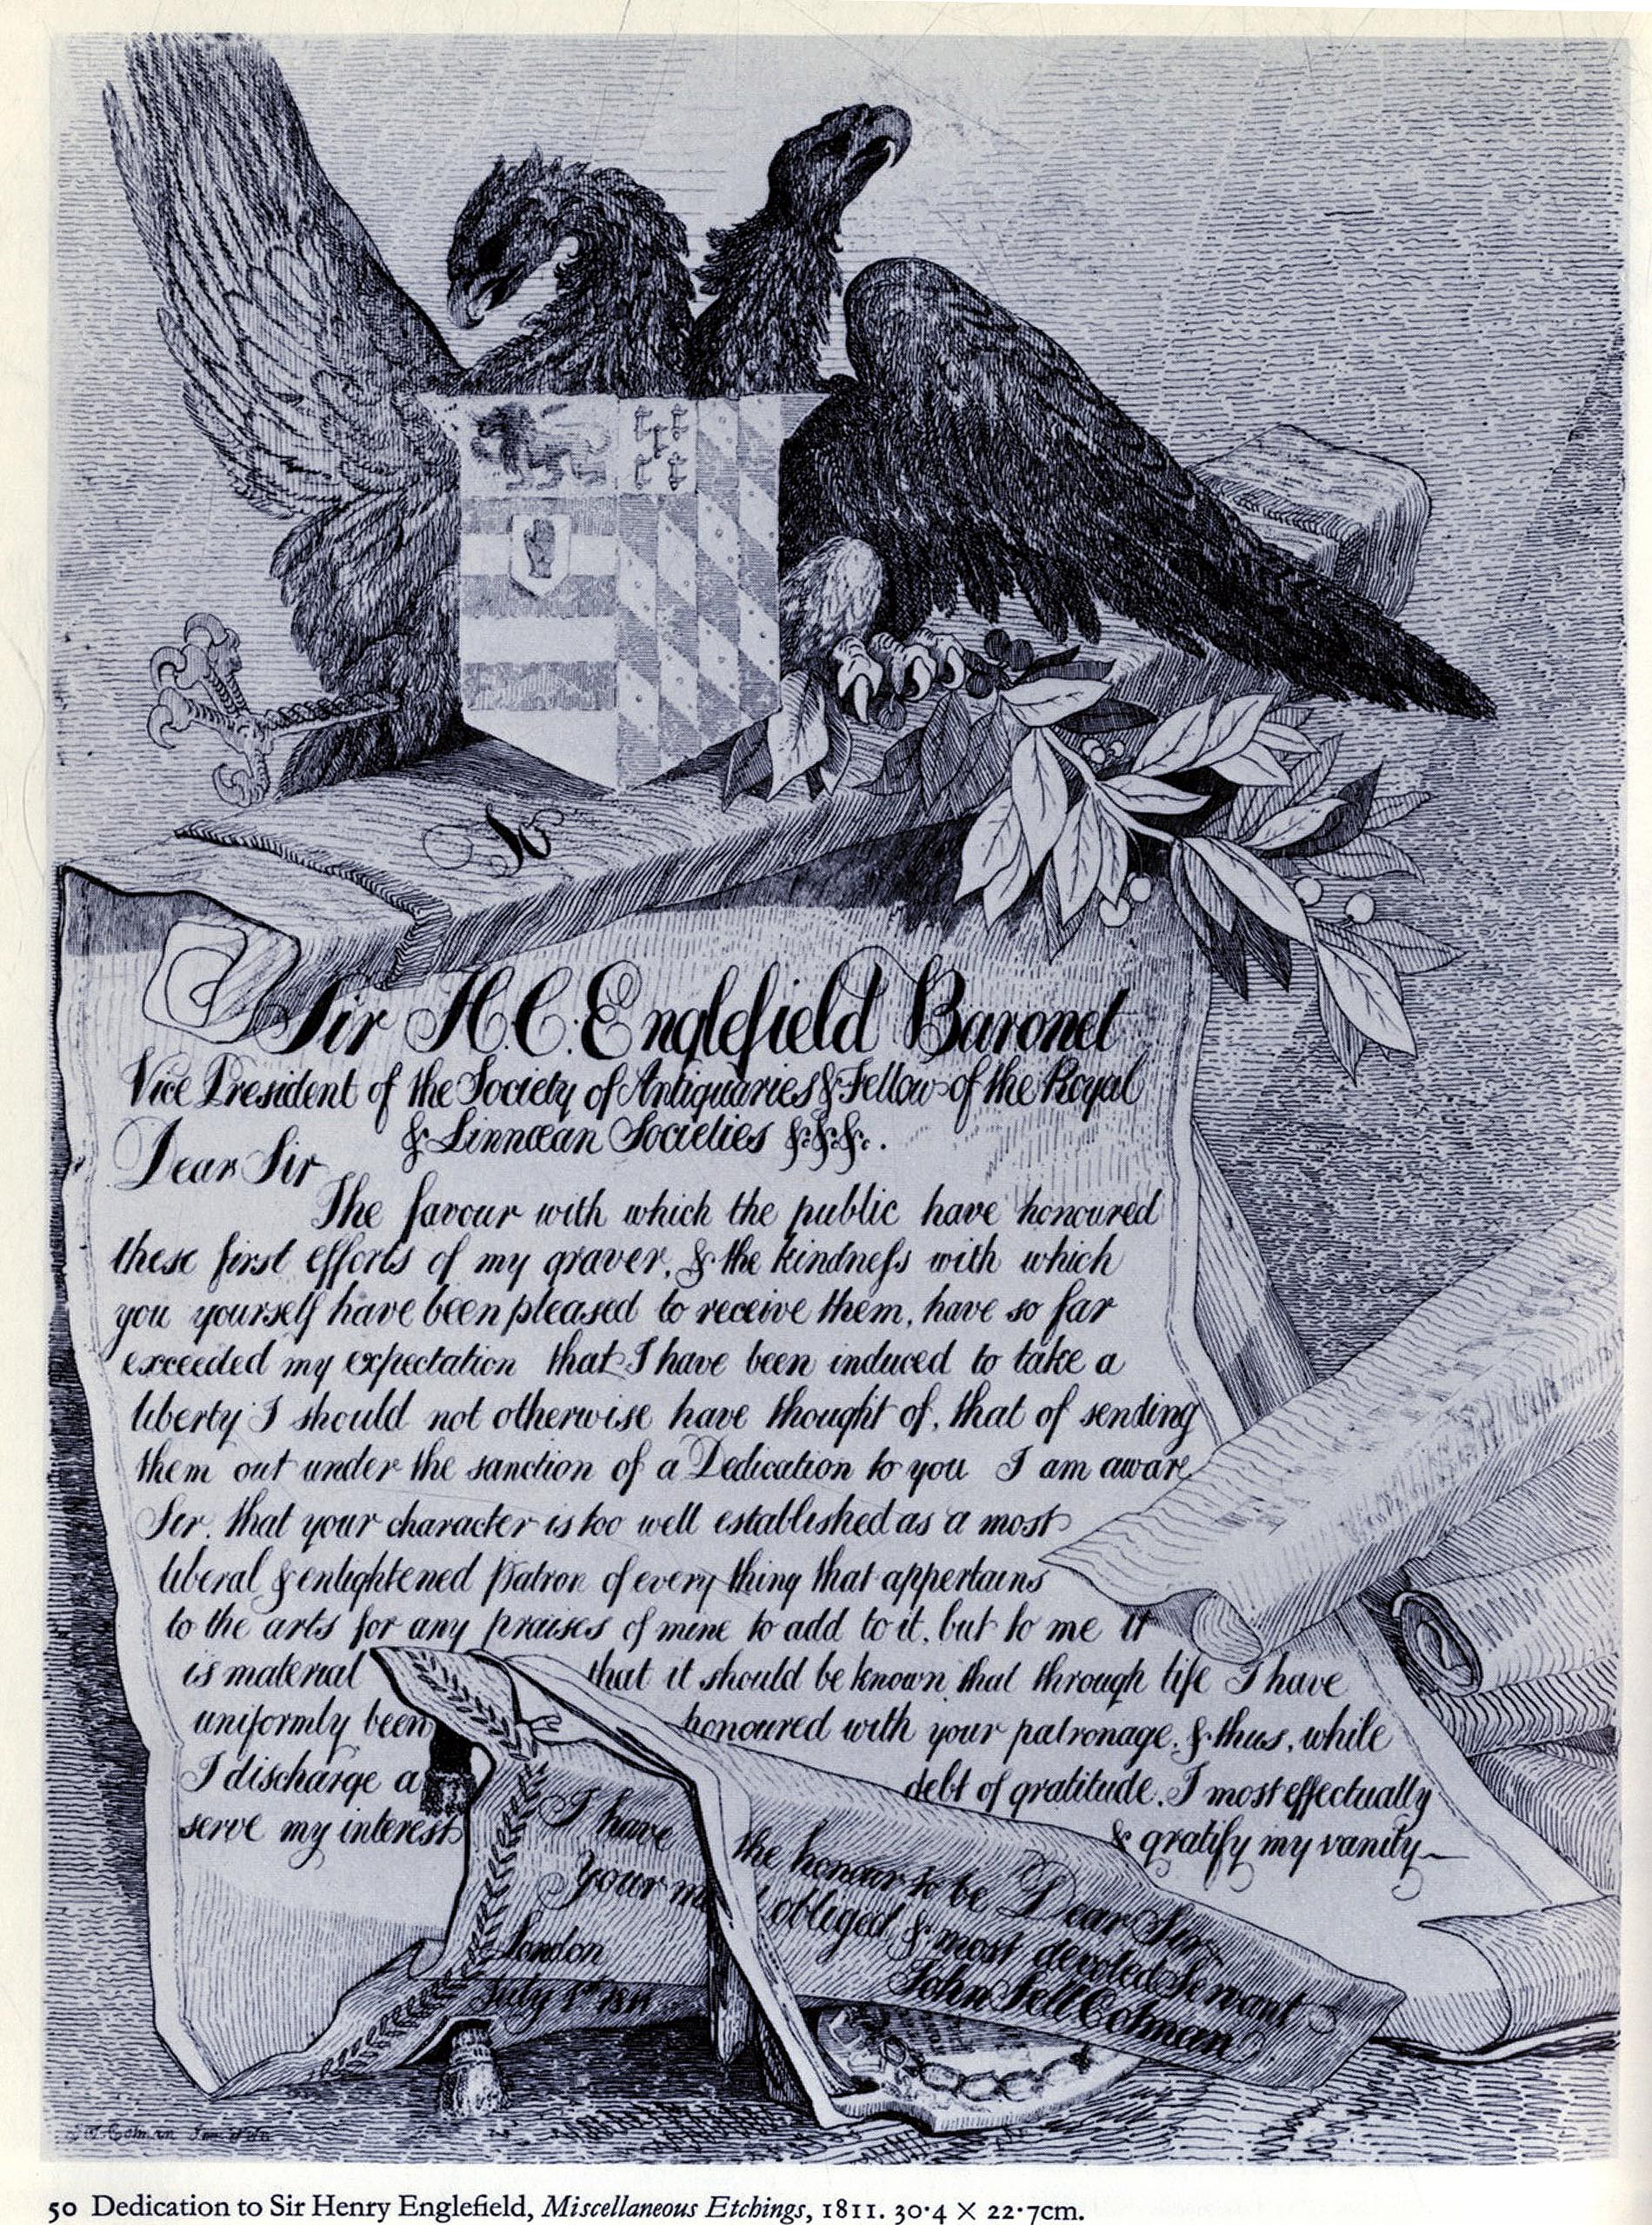 To
Sir H.C. Englefield Baronet
Vice President of the Society of Antiquaries & Fellow of the Royal
& Linnœan Societies &c &c &c.
Dear Sir
The favour with which the public have honoured
these first efforts of my graver, & the kindneſs with which
you yourself have been pleased to receive them, have so far
exceeded my expectation that I have been induced to take a
liberty I should not otherwise have thought of, that of sending
them out under the sanction of a Dedication to you I am aware
Sir, that your character is too well established as a most
liberal & enlightened patron of every thing that appertains
to the arts for any praises of mine to add to it, but to me it
is material that it should be known that through life I have
uniformly been honoured with your patronage, & thus, while
I discharge a debt of gratitude, I most effectually
serve my interest & gratify my vanity
I have the honour to be Dear Sir
Your obliged & most devoted Servant
John Sell Cotman
London
July 1st 1811
Cotman
50 Dedication to Sir Henry Englefield, Miscellaneous Etchings, 1811. 30·4 × 22·7cm.